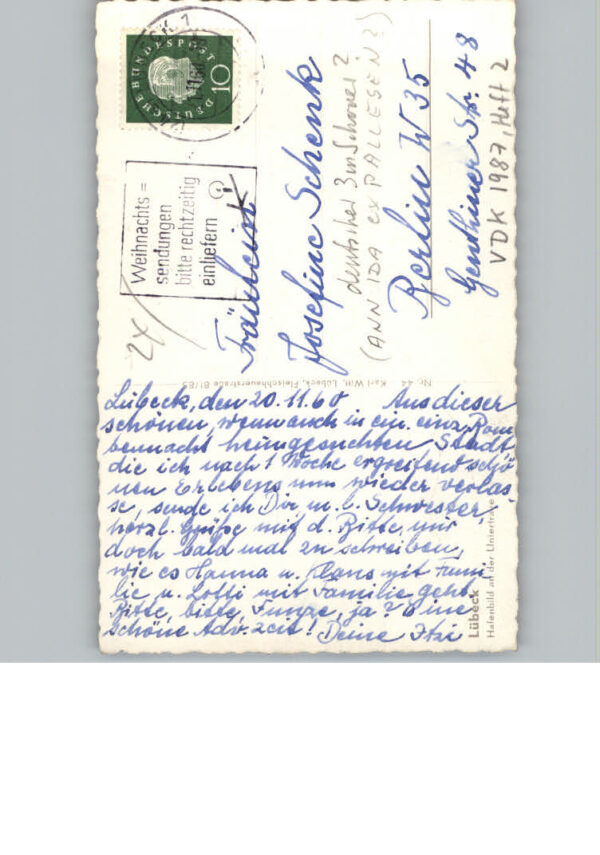 DEUTSCHE BUNDESPOST
10
Weihnachts=
sendungen
bitte rechtzeitig
einliefern
Fräulein
Josefine Schenk
deutscher 3m Schoner ?
(ANN IDA ex PALLESEN ?)
Berlin W 35
Genthiner Str. 48
VDK 1987, Heft 2
2x
Nr. 44 Karl Witt, Lübeck, Fleischhauerstraße 81/85
Lübeck, den 20.11.60 Aus dieser
schönen, wenn auch in ein. einz. Bom
bennacht heimgesuchten Stadt
die ich nach 1 Woche ergreifend schö
nen Erlebens nun wieder verlas-
se, sende ich Dir, m. l. Schwester,
herzl. Grüße mit d. Bitte, mir
doch bald mal zu schreiben,
wie es Hanna u. Hans mit Fami
lie u. Lotti mit Familie geht
Bitte, bitte, ja? Eine
schöne Adv. zeit! Deine
Lübeck
Hafenbild an der Untertrave